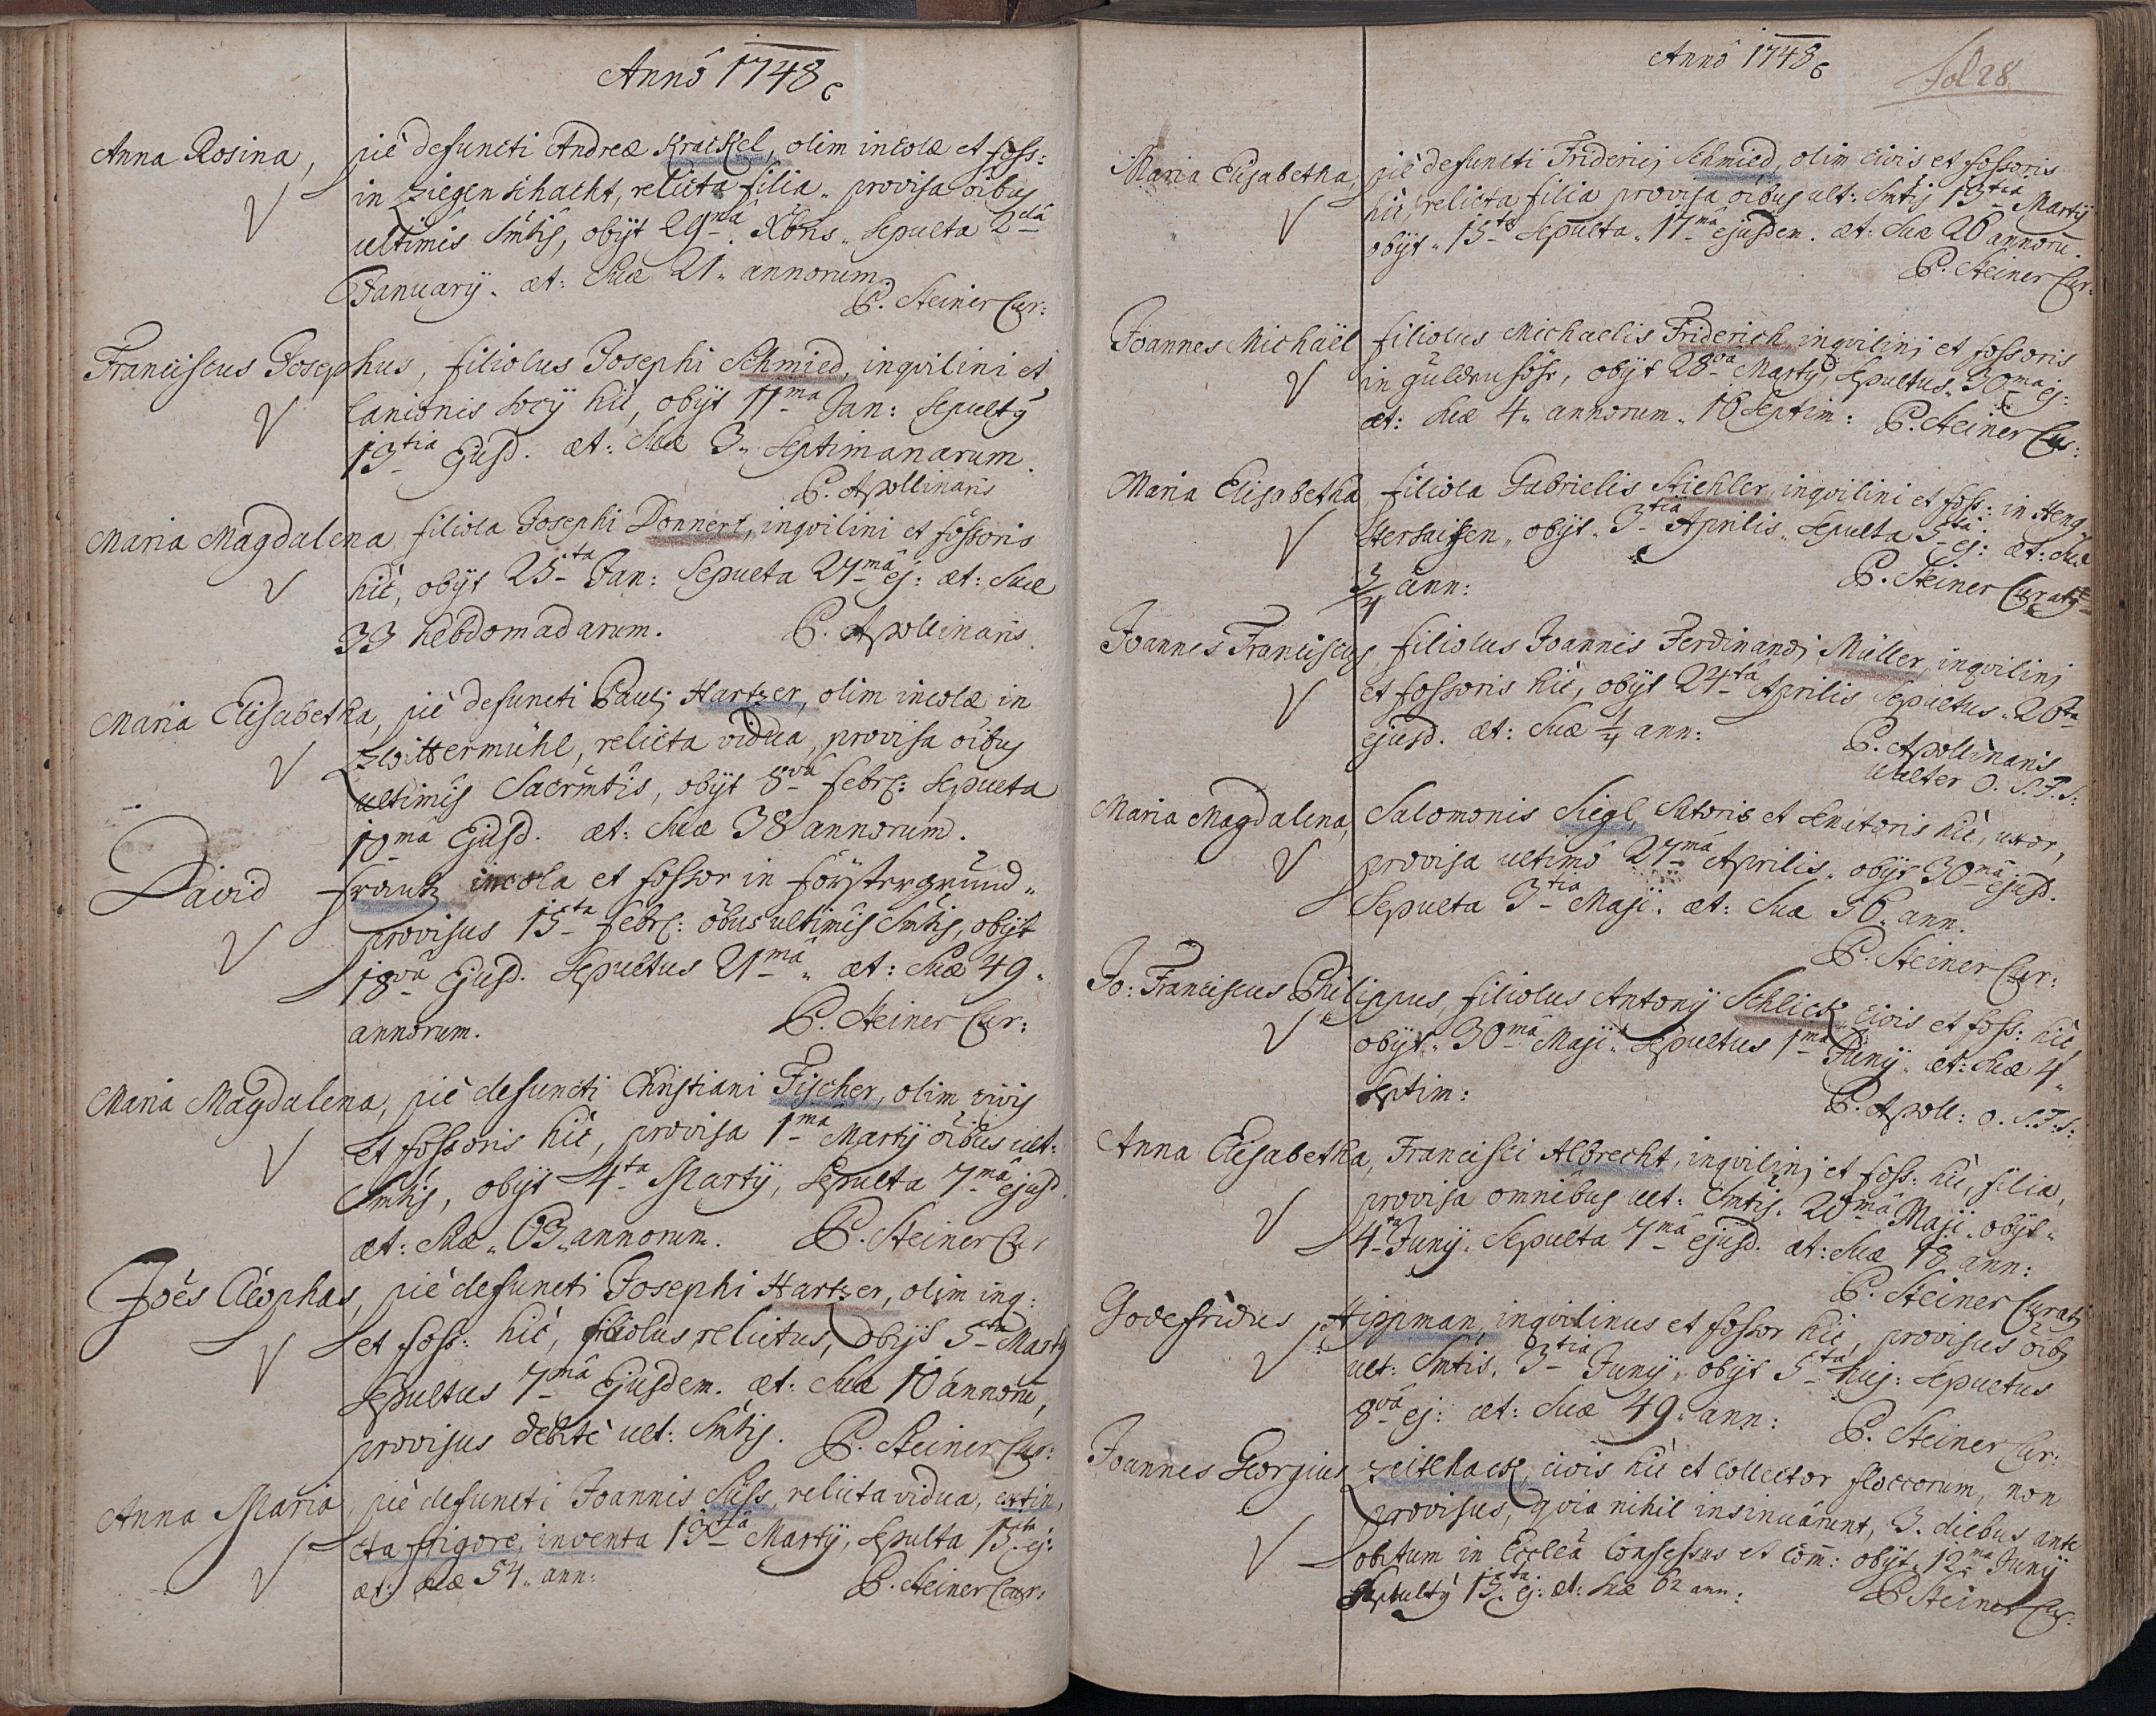 Annô 1748
Anna Rosina, piè defuncti Andreæ Krackel, olim incolæ et foss:
in Ziegenschacht, relicta filia, provisa oibus
ultimis Smtis, obijt 29mâ Xbris, Sepulta 2dâ
January. æt: Suæ 21. annorum.
P. Steiner Cur:
Franciscus Josephus, filiolus Josephi Schmied, inqvilini et
Lanionis Socij hic, obijt 11ma Jan: Sepultg
13tia Ejusd. æt: Suæ 3. Septimanarum.
P. Apollinaris
Maria Magdalena filiola Josephi Donnert, inqvilini et fossoris
hic, obijt 25ta Jan: Sepulta 27mâ ej: æt: Suæ
33 hebdomadarum. P. Apollinaris.
Maria Elisabetha, piè defuncti Pauli Hartzer, olim incolæ in
Zwittermühl, relicta vidua, provisa oibus
ultimis Sacrmtis, obijt 8vâ febr: Sepulta
10mâ Ejusd. æt: Suæ 38 annorum.
David frantz incola et fossor in förstergrund,
provisus 15ta febr: oibus ultimis Smtis, obijt
18vâ Ejusd. Sepultus 21mâ. æt: Suæ 49.
annorum. P. Steiner Cur:
Maria Magdalena, piè defuncti Christiani Fischer, olim civis
et fossoris hic, provisa 1mâ Martij oibus ult:
Smtis, obijt 4ta Martij, Sepulta 7mâ ejusd.
æt: Suæ 63 annorum. P. Steiner Cur
Joês Cleophas, piè defuncti Josephi Hartzer, olim inq:
et foss: hic, filiolus relictus, obijt 5ta Martij
Sepultus 7mâ Ejusdem. æt: Suæ 10 annorū,
provisus debitè ult: Smtis. P. Steiner Cur:
Anna Maria, piè defuncti Joannis Süss, relicta vidua, extin,
cta frigore, inventa 13tiâ Martij, Sepulta 15ta ej:
æt: suæ 54. ann: P. Steiner Cur:
Annô 1748
Fol 28
Maria Elisabetha, piè defuncti Friderici Schmied, olim civis et fossoris
hic, relicta filia provisa oibus ult: Smtis 13tia Martij
obijt 15ta Sepulta 17mâ ejusdem. æt: Suæ 26 annorū.
P. Steiner Cur:
Joannes Michaël filiolus Michaelis Friderich, inqvilini et fossoris
in güldenhöhe, obijt 28va Martij, sepultus 30ma ej:
æt: suæ 4. annorum. 16 Septim: P. Steiner Cur:
Maria Elisabetha filiola Gabrielis Stiehler, inqvilini et foss: in Heng,
sterhaisen, obijt 3tia Aprilis. Sepulta 5ta ej: æt: Suæ
3/4 ann: P. Steiner Curatg
Joannes Franciscus, filiolus Joannis Ferdinandi Müller, inqvilini
et fossoris hic, obijt 24ta Aprilis Sepultus 26ta
ejusd. æt: Suæ 1/4 ann: P. Apollinaris
Walter O. S. F. S:
Maria Magdalena, Salomonis Siegl, Sutoris et Senatoris hic, uxor,
provisa ultimô 27mâ Aprilis. obijt 30mâ ejusd.
Sepulta 3tia Maji. æt: Suæ 56. ann.
P. Steiner Cur:
Jo: Franciscus Philippus, filiolus Antonij Schlick, civis et foss: hic
obijt 30mâ Maji. Sepultus 1mâ Junij. æt: Suæ 4.
Septim: P. Apoll: O. S. F. S:
Anna Elisabetha, Francisci Albrecht, inqvilini et foss: hic, filia,
provisa omnibus ult: Smtis. 20mâ Maji. obijt
4ta Junij. Sepulta 7mâ ejusd. æt: Suæ 18 ann:
P. Steiner Curatg
Godefridus Hippman, inqvilinus et fossor hic, provisus oibg
ult: Smtis. 3tia Junij, obijt 5ta huj: Sepultus
8vâ ej: æt: Suæ 49. ann: P. Steiner Cur:
Joannes Georgius Zeitlhack, civis hic et Collector floccorum, non
provisus, qvia nihil insinuârunt, 3. diebus ante
obitum in Ecclâ Confessus et Com̄: obijt 12ma Junij
Sepultg 15ta ej: æt: suæ 62 ann: P. Steiner Cur: